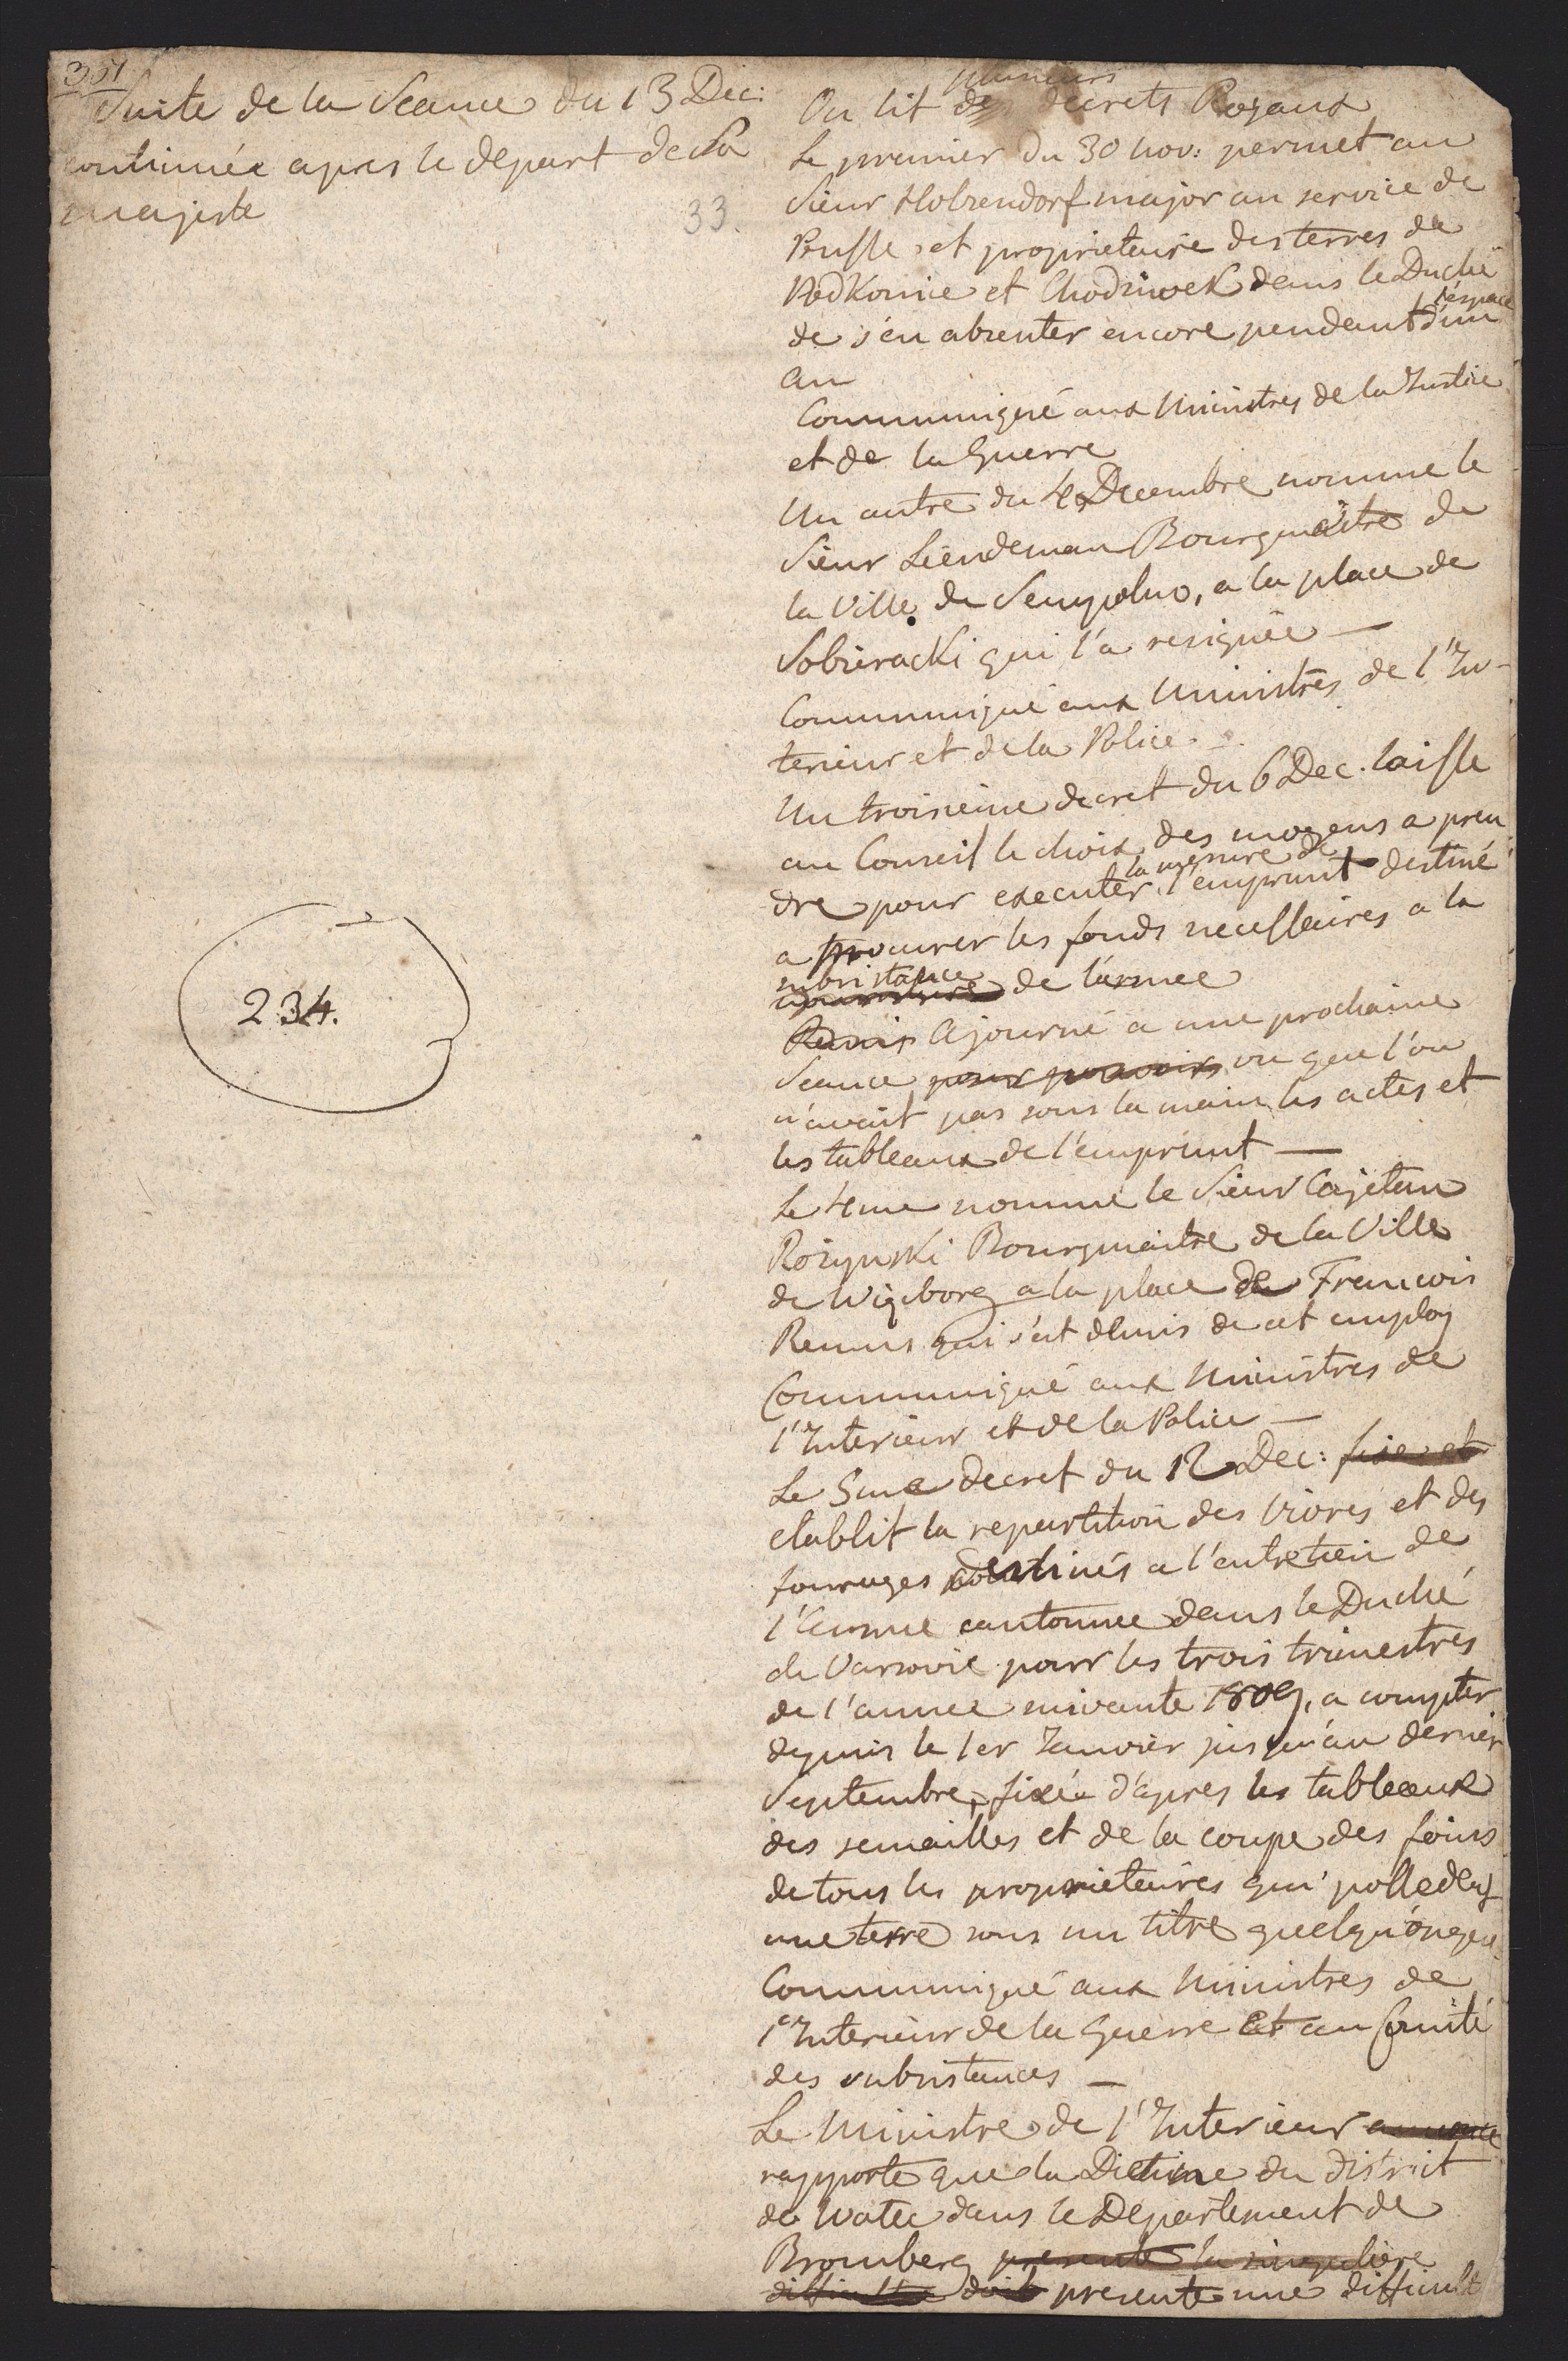 351
Suite de la Seance du 13 Dec:
continuée apres le depart de Sa
majeste
33.
234.
plusieurs
On lit des decrets Royaux
Le premier du 30 nov: permet au
Sieur Holzendorf major au service de
Prusse et proprietaire des terres de
et dans le Duché
de s'en absenter encore pendant l'espace d'un
an
Communiqué aux Ministres de la Justice
et de la Guerre
Un autre du 4 Decembre nomme le
Sieur Liendeman Bourgmaitre de
la Ville de Sempolno, a la place de
Sobieracki qui l'a resignée —
Communiqué aux Ministres de l'In-
terieur et de la Police.
Un troisieme decret du 6 Dec. laisse
au Conseil le choix des moyens a pren
dre pour executer la mesure de l'emprunt destiné
a procurer les fonds necessaires a la
subsistance de l'armee
Remis Ajourné a une prochaine
Seance pour pouvoir vu que l'on
n'avait pas sous la main les actes et
les tableaux de l'emprunt —
Le 4eme nomme le Sieur Cajetan
Rozynski Bourgmaitre de la Ville
de a la place de Francois
Remus qui s'est demis de cet employ
Communiqué aux Ministres de
l'Interieur et de la Police —
Le 5me decret du 12 Dec: fixe et
etablit la repartition des vivres et des
fourages destinés a l'entretien de
l'Armee cantonnee dans le Duché
de Varsovie pour les trois trimestres
de l'annee suivante 1809, a compter
depuis le 1er Janvier jusqu'au dernier
Septembre, fixée d'apres les tableaux
des semailles et de la coupe des foins
de tous les proprietaires qui possedent
une terre sous un titre quelqu'onque
Communiqué aux Ministres de
l'Interieur de la Guerre et au Comité
des subsistances —
Le Ministre de l'Interieur annonce
rapporte que la Dietine du district
de Walcz dans le Departement de
Bromberg presente la singuliere
difficulté doit presente une difficult